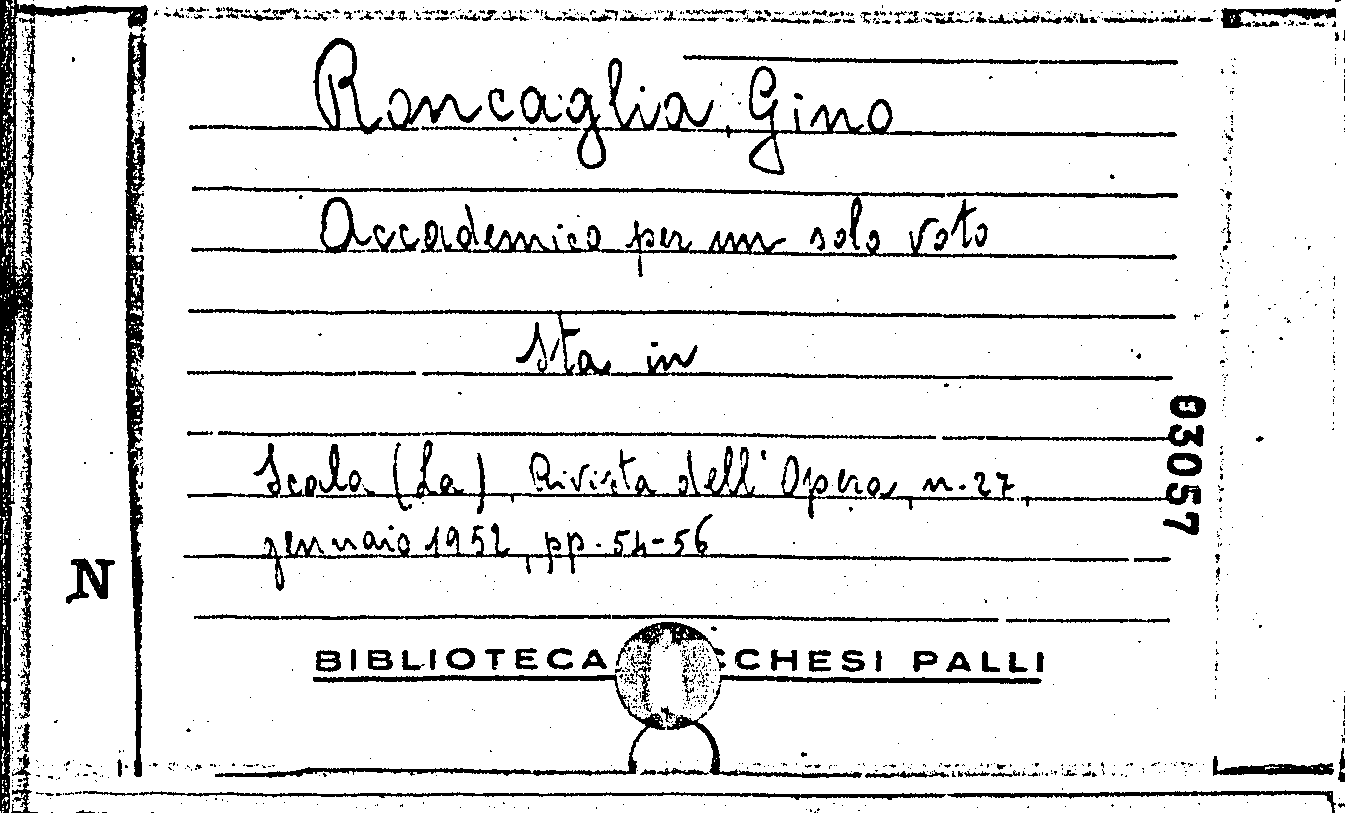 Roncaglia, Gino
Accademico per un solo voto
Sta in
Scala (La), Rivista dell'Opera, n. 27,
gennaio 1952, pp. 54-56
03057
N
BIBLIOTECA CCHESI PALLI